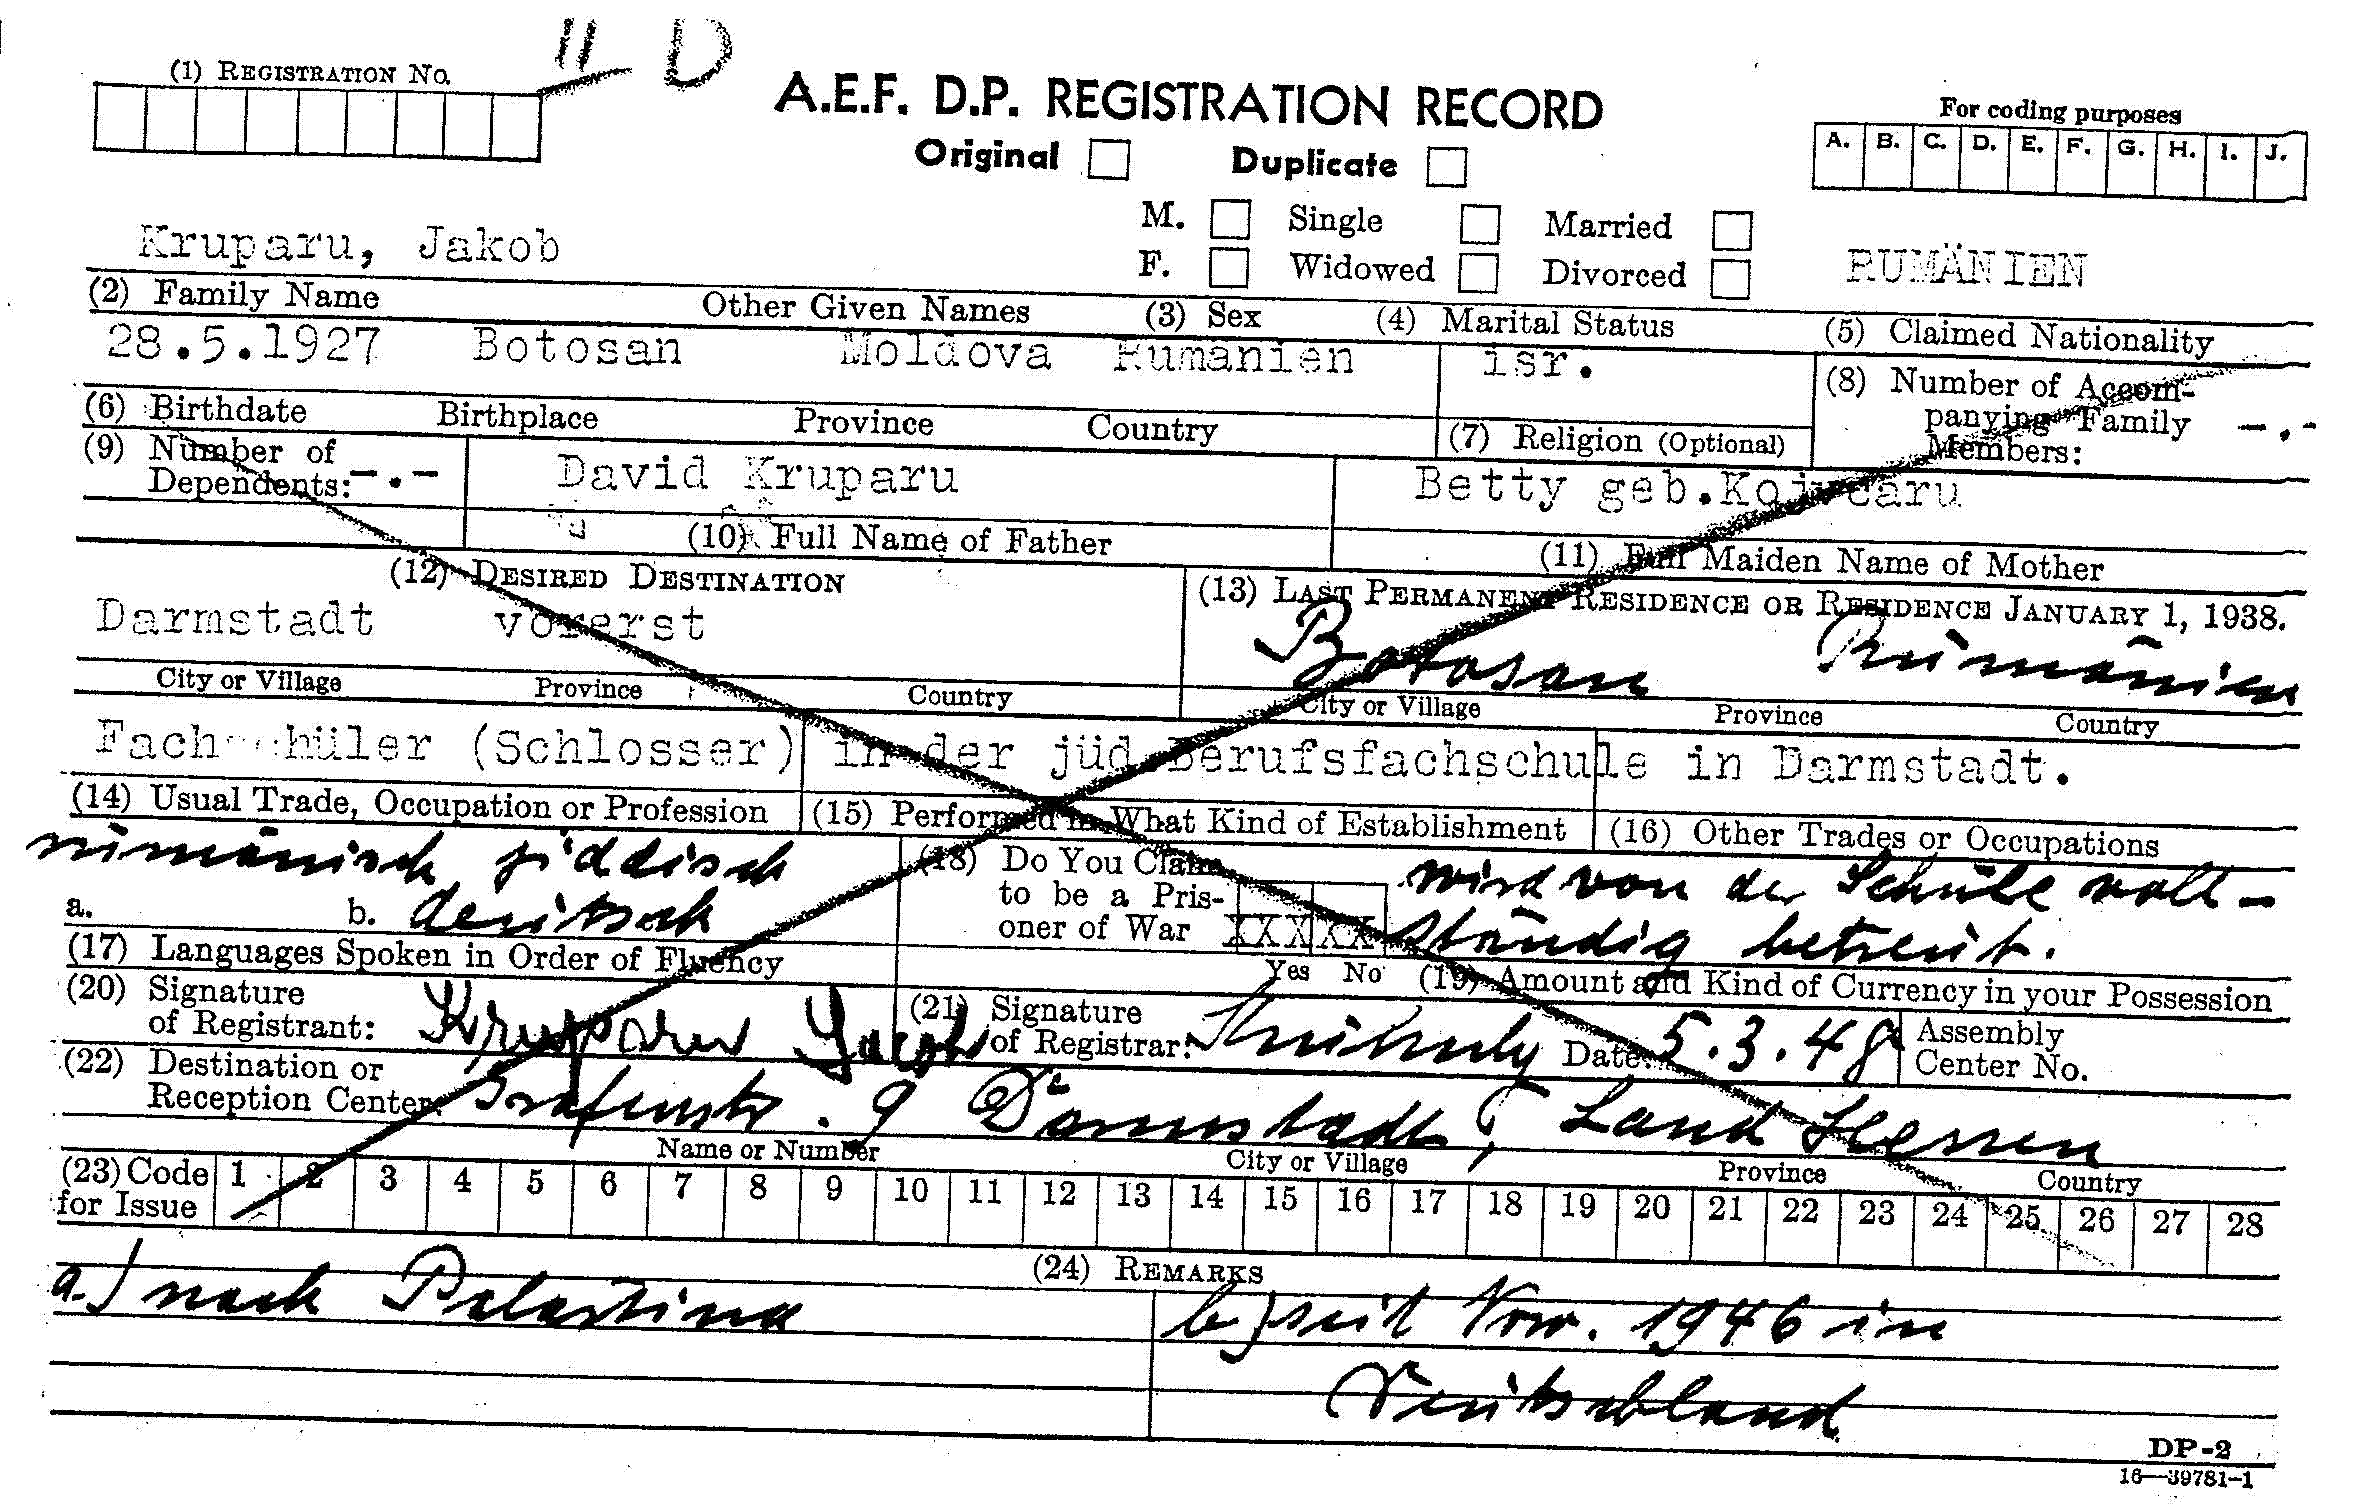 II D
(1) REGISTRATION No.
A.E.F. D.P. REGISTRATION RECORD
For coding purposes
Original Duplicate
A. B. C. D. E. F. G. H. I. J.
M. Single Married
Kruparu, Jakob RUMÄNIEN
F. Widowed Divorced
(2) Family Name Other Given Names (3) Sex (4) Marital Status (5) Claimed Nationality
28.5.1927 Botosan Moldova Rumanien isr.
(8) Number of Accom-
panying Family -.-
Members:
(6) Birthdate Birthplace Province Country (7) Religion (Optional)
(9) Number of
Dependents: -.- David Kruparu Betty geb.
(10) Full Name of Father (11) Full Maiden Name of Mother
(12) DESIRED DESTINATION (13) LAST PERMANENT RESIDENCE OR RESIDENCE JANUARY 1, 1938.
Darmstadt vorerst Botosan Rumänien
City or Village Province Country City or Village Province Country
Fachschüler (Schlosser) in der jüd.Berufsfachschule in Darmstadt.
(14) Usual Trade, Occupation or Profession (15) Performed in What Kind of Establishment (16) Other Trades or Occupations
rumänisch jiddisch
a. b. deutsch
(17) Languages Spoken in Order of Fluency
(18) Do You Claim
to be a Pris-
oner of War XXX XX
Yes No
wird von der Schule voll-
ständig betreut.
(19) Amount and Kind of Currency in your Possession
(20) Signature
of Registrant: Kruparu Jacob
(21) Signature
of Registrar: Date: 5.3.48 Assembly
Center No.
(22) Destination or
Reception Center: Grafenstr. 9 Darmstadt, Land Hessen
Name or Number City or Village Province Country
(23) Code
for Issue 1 2 3 4 5 6 7 8 9 10 11 12 13 14 15 16 17 18 19 20 21 22 23 24 25 26 27 28
(24) REMARKS
a.) nach Palästina b) seit Nov. 1946 in
Deutschland
DP-2
16—39781-1